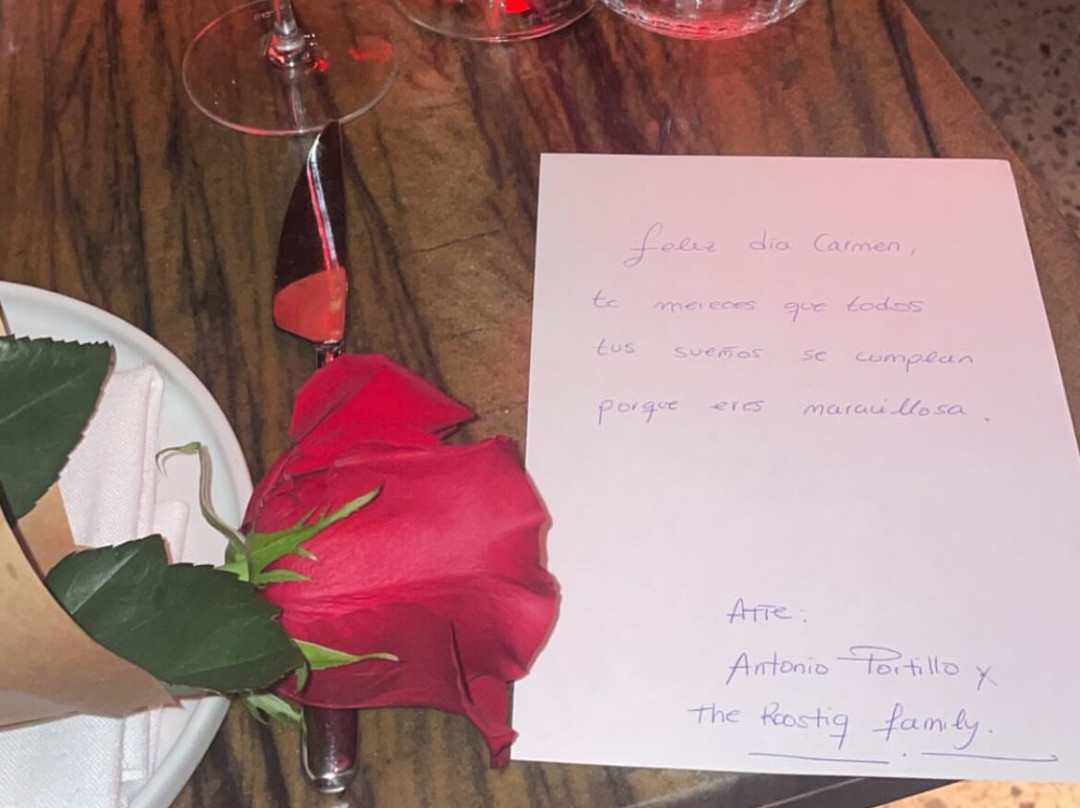 feliz día Carmen,
te mereces que todos
tus sueños se cumplan
porque eres maravillosa.
ATTE:
Antonio Portillo x
The Roostiq family.